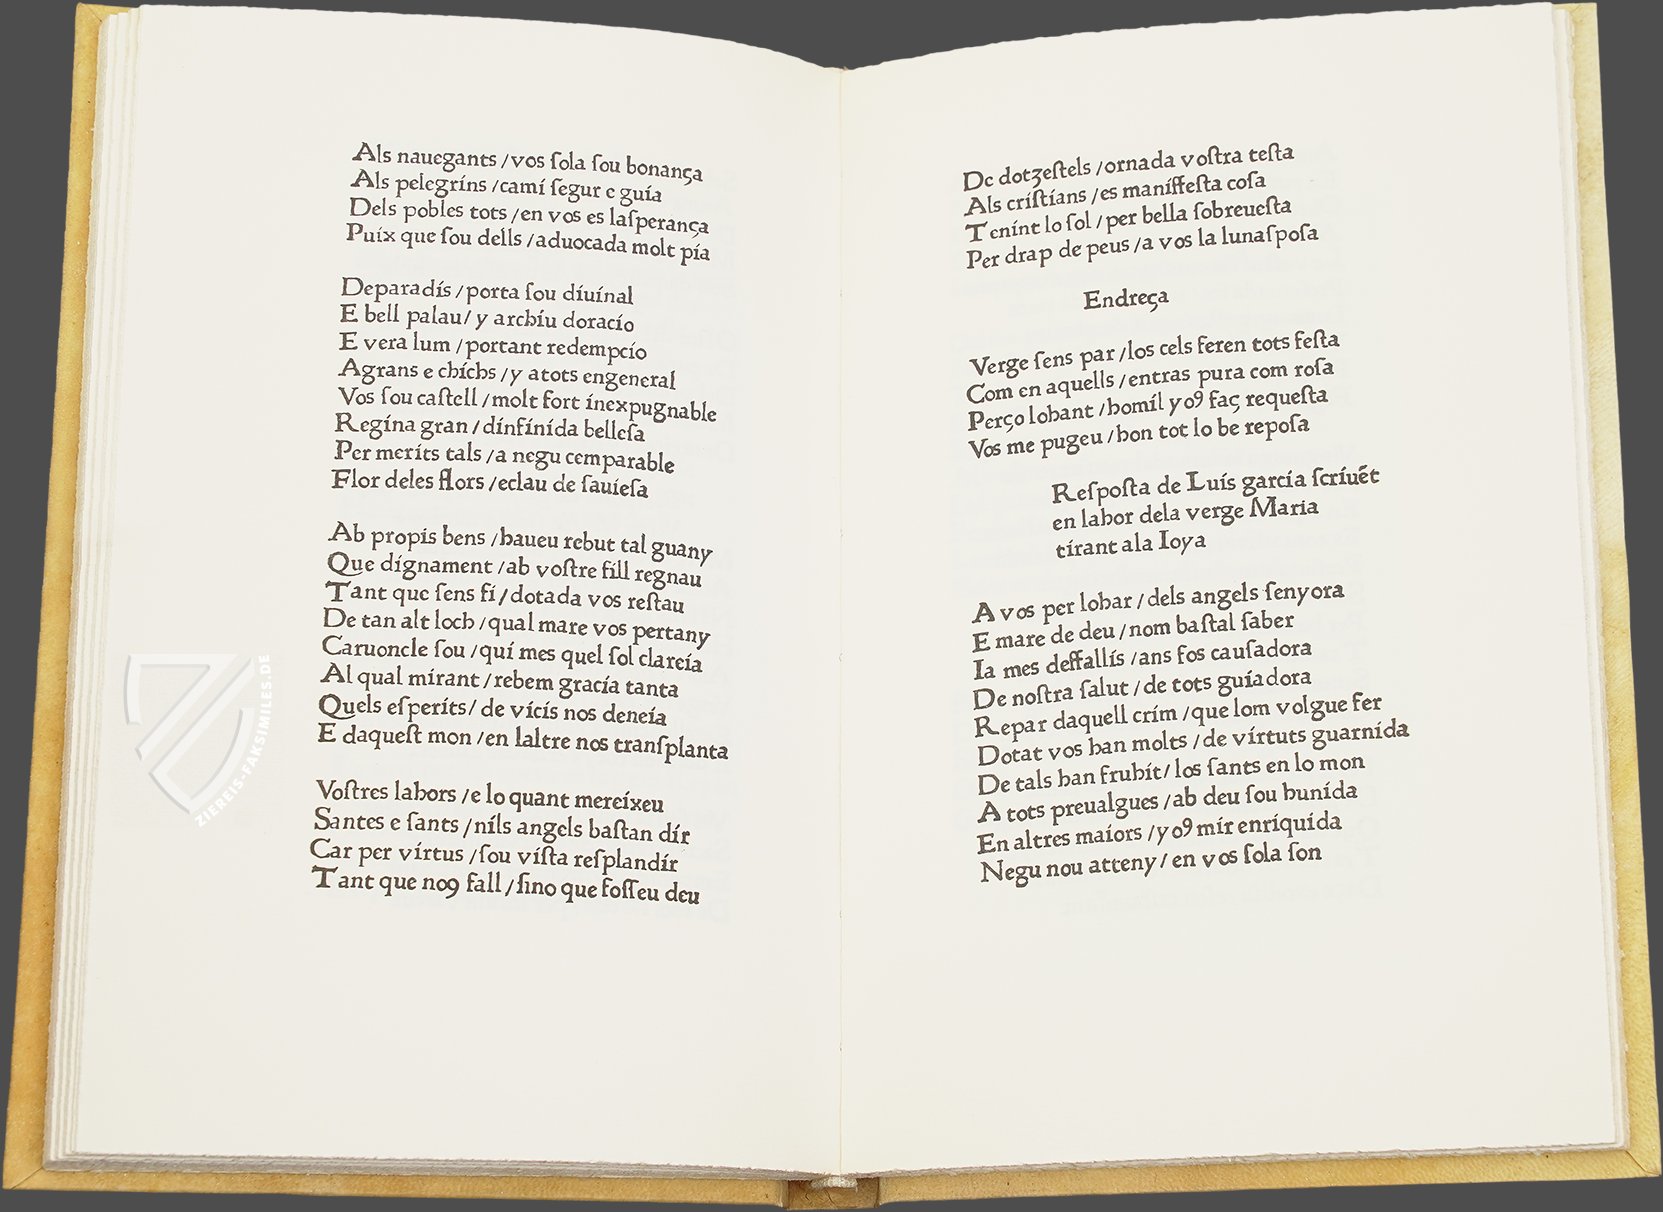 Als nauegants /vos ſola ſou bonança
Als pelegrins /cami ſegur e guia
Dels pobles tots /en vos es laſperança
Puix que ſou dells /aduocada molt pia
Deparadis /porta ſou diuinal
E bell palau/ y archiu doracio
E vera lum /portant redempcio
Agrans e chichs /y atots engeneral
Vos ſou caſtell /molt fort inexpugnable
Regina gran /dinfinida belleſa
Per merits tals /a negu cemparable
Flor deles flors /eclau de ſauieſa
Ab propis bens /haueu rebut tal guany
Que dignament /ab voſtre fill regnau
Tant que ſens fi/dotada vos reſtau
De tan alt loch/qual mare vos pertany
Caruoncle ſou /qui mes quel ſol clareia
Al qual mirant/rebem gracia tanta
Quels eſperits/ de vicis nos deneia
E daqueſt mon /en laltre nos tranſplanta
Voſtres labors /e lo quant mereixeu
Santes e ſants /nils angels baſtan dir
Car per virtus /ſou viſta reſplandir
Tant que noꝯ fall /ſino que foſſeu deu
De dotzeſtels /ornada voſtra teſta
Als criſtians /es maniffeſta coſa
Tenint lo ſol /per bella ſobreueſta
Per drap de peus /a vos la lunaſpoſa
Endreça
Verge ſens par /los cels feren tots feſta
Com en aquells /entras pura com roſa
Perço lohant /homil yoꝯ faç requeſta
Vos me pugeu /hon tot lo be repoſa
Reſpoſta de Luis garcia ſcriuẽt
en lahor dela verge Maria
tirant ala Ioya
A vos per lohar /dels angels ſenyora
E mare de deu /nom baſtal ſaber
Ia mes deffallis /ans fos cauſadora
De noſtra ſalut /de tots guiadora
Repar daquell crim /que lom volgue fer
Dotat vos han molts /de virtuts guarnida
De tals han fruhit/ los ſants en lo mon
A tots preualgues /ab deu ſou hunida
En altres maiors /yoꝯ mir enriquida
Negu nou atteny/ en vos ſola ſon
ZIEREIS-FAKSIMILES.DE